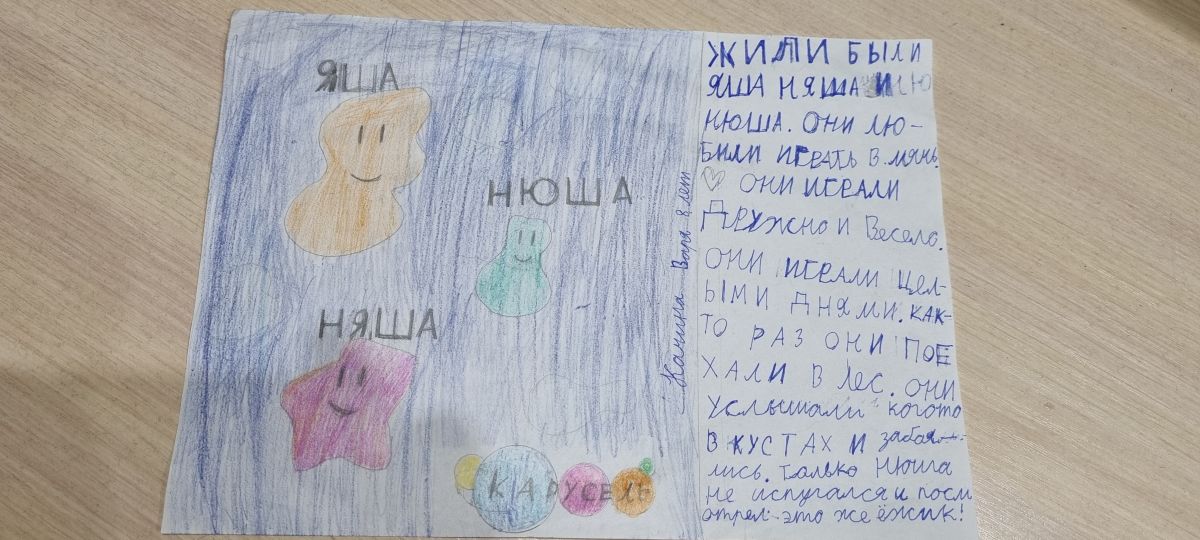 ЯША
НЮША
НЯША
КАРУСЕЛЬ
Качина Варя 8 лет
ЖИЛИ БЫЛИ
ЯША НЯША И НЮ
НЮША. ОНИ ЛЮ-
БИЛИ ИГРАТЬ В МЯЧЬ.
♡ ОНИ ИГРАЛИ
ДРУЖНО И Весело.
ОНИ ИГРАЛИ ЦЕЛ-
ЫМИ ДНЯМИ. КАК-
ТО РАЗ ОНИ ПОЕ
ХАЛИ В ЛЕС. ОНИ
УСЛЫШАЛИ когото
В КУСТАХ И забоя-
лись. Только Нюша
не испугался и посм
отрел - это же ёжик!